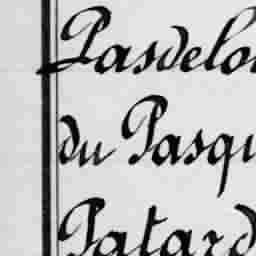 Pasdelo
du Pasqu
Patard